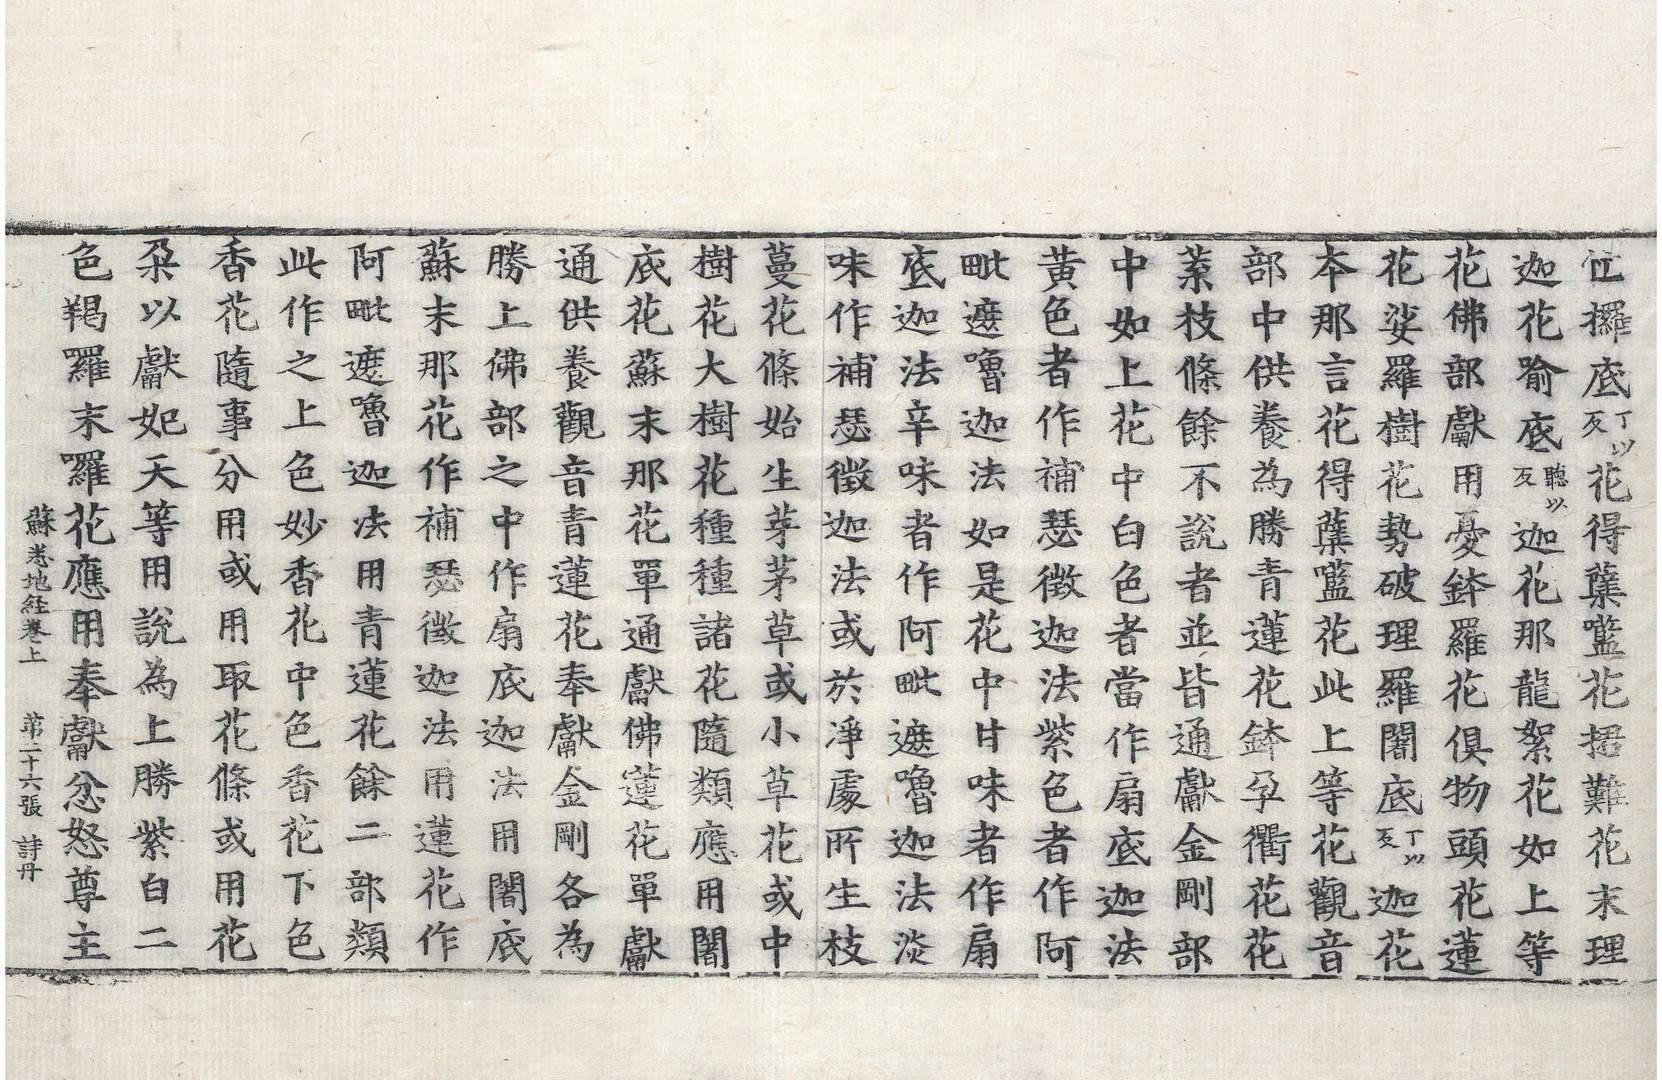 仾攞底丁以反花得蘖㘕花捃難花末理
迦花喻底聽以反迦花那龍絮花如上等
花佛部獻用憂鉢羅花俱物頭花蓮
花娑羅樹花勢破理羅闍底丁以反迦花
本那言花得蘖㘕花此上等花觀音
部中供養為勝青蓮花鉢孕衢花花
葉枝條餘不說者並皆通獻金剛部
中如上花中白色者當作扇底迦法
黃色者作補瑟徵迦法紫色者作阿
毗遮嚕迦法如是花中甘味者作扇
底迦法辛味者作阿毗遮嚕迦法淡
味作補瑟徵迦法或於淨處所生枝
蔓花條始生芽茅草或小草花或中
樹花大樹花種種諸花隨類應用闍
底花蘇末那花單通獻佛蓮花單獻
通供養觀音青蓮花奉獻金剛各為
勝上佛部之中作扇底迦法用闍底
蘇末那花作補瑟徵迦法用蓮花作
阿毗遮嚕迦法用青蓮花餘二部類
此作之上色妙香花中色香花下色
香花隨事分用或用取花條或用花
朶以獻妃天等用說為上勝紫白二
色羯羅末羅花應用奉獻忿怒尊主
蘇悉地経卷上　第二十六張　詩丹